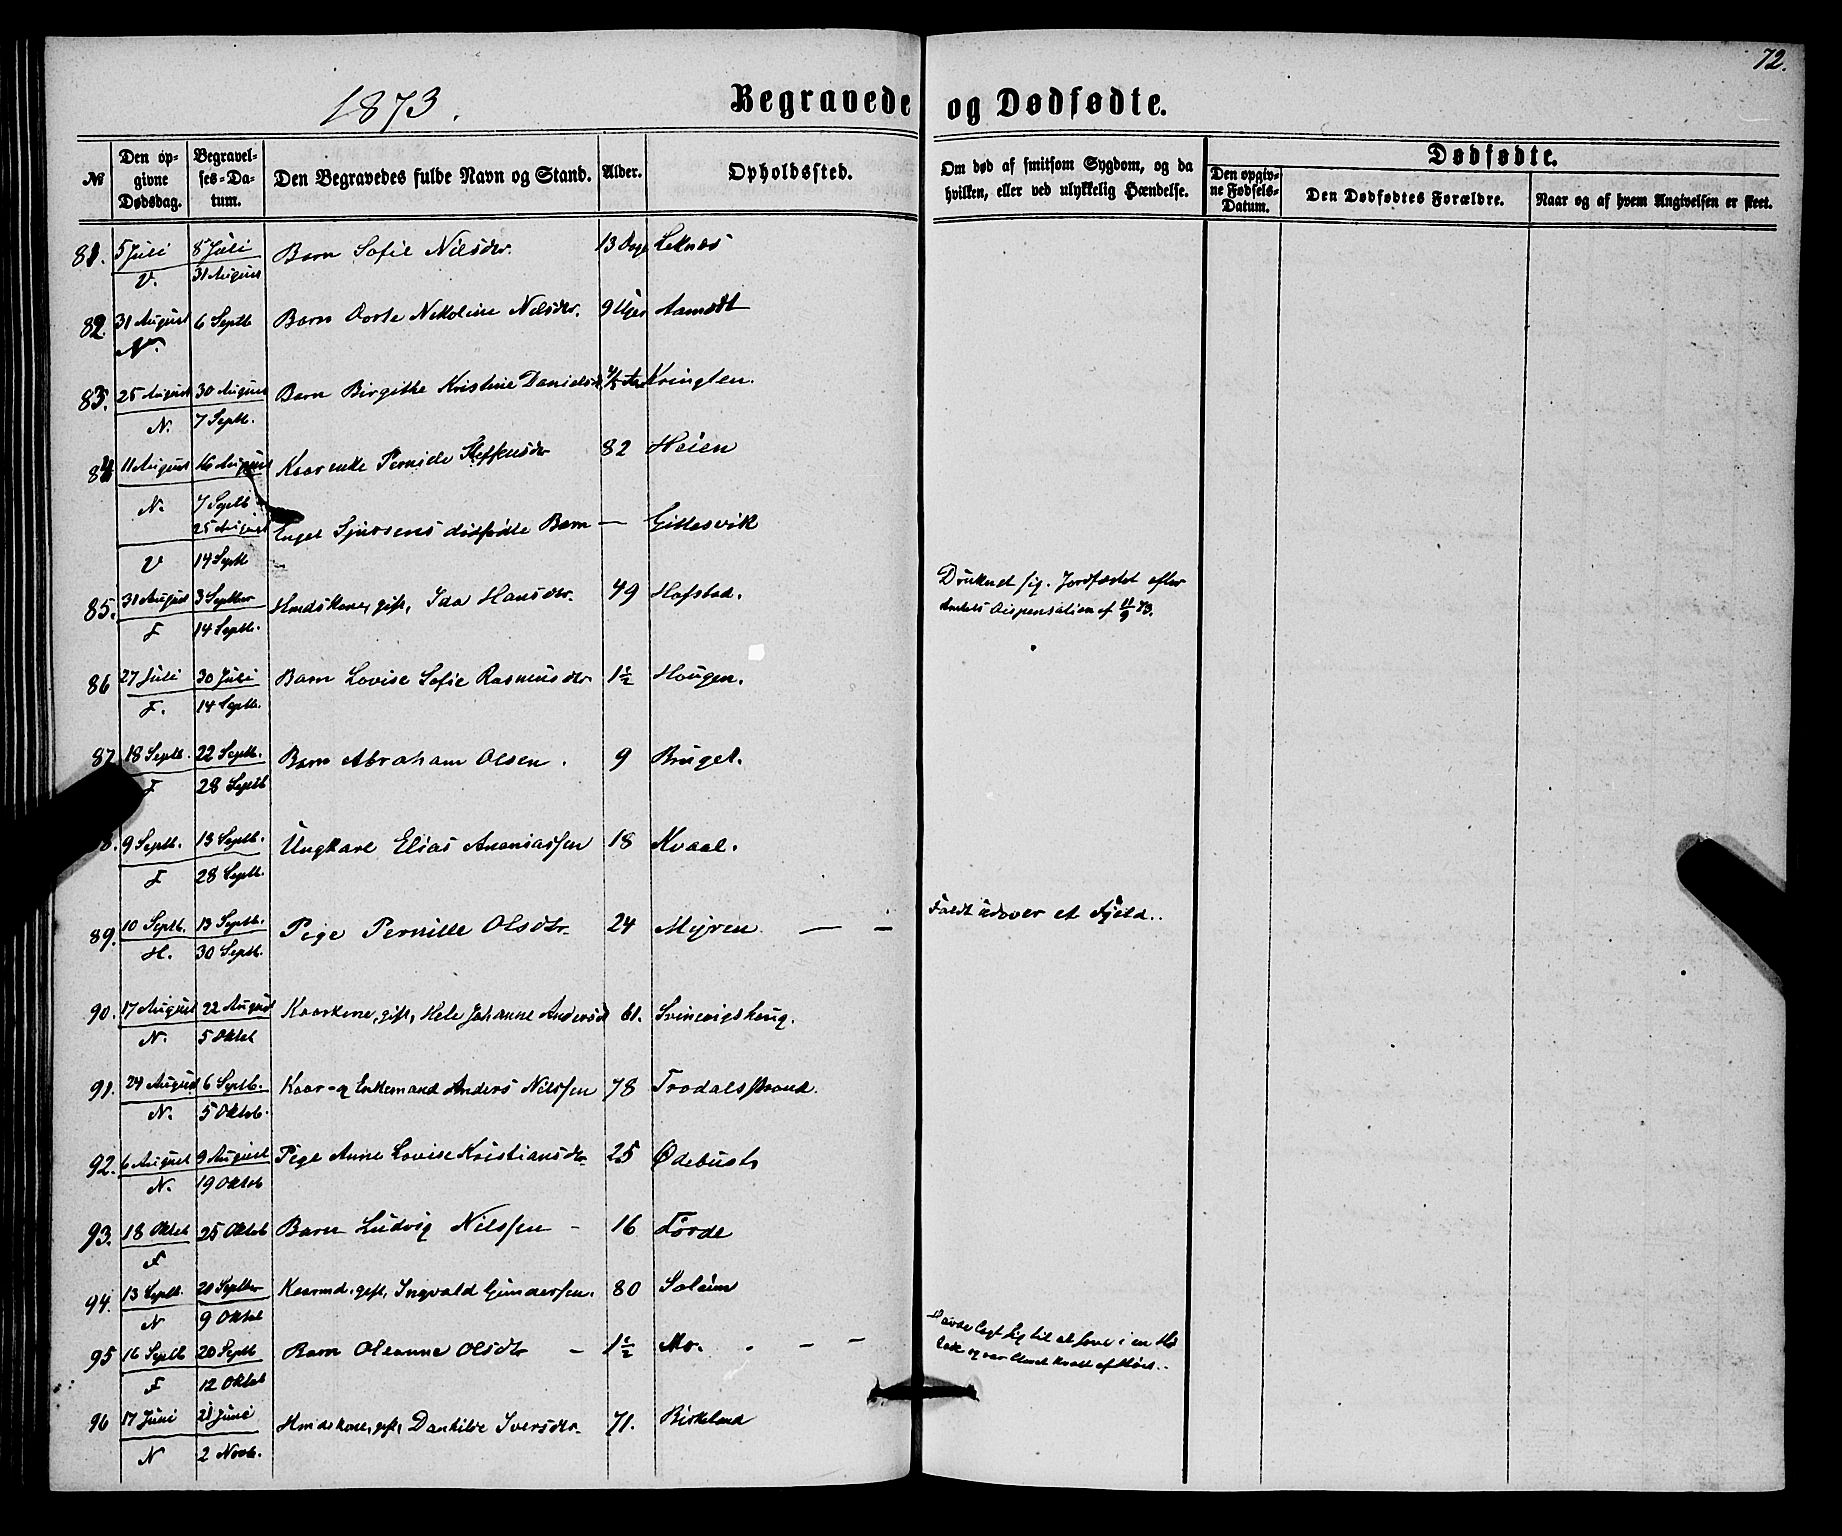 72.
1873.
Begravede og Dødfødte.
№
Den opgivne Dødsdag.
Begravelses-Datum.
Den Begravedes fulde Navn og Stand.
Alder.
Opholdssted.
Om død af smitsom Sygdom, og da hvilken, eller ved ulykkelig Hændelse.
Dødfødte.
Den opgivne Fødsels-Datum.
Den Dødfødtes Forældre.
Naar og af hvem Angivelsen er skeet.
81. 5 Juli 8 Juli Barn Sofie Nilsdtr. 13 Dage Leknæs
V. 31 August
82. 31 August 6 Septb Barn Dorte Nikoline Nilsdtr. 9 Uger Aamodt
N.
83. 25 August 30 August Barn Birgithe Kristine Daniels Kringlen.
N. 7 Septb.
84 11 August 16 August Kaarenke Pernille Steffensdtr 82 Heien
N. 7 Septb
25 August Engel Sjursens dødfødte Barn — Gittesvik
V 14 Septb
85. 31 August 3 Septber Hmdskone, gift, Ida Hansdtr. 49 Hafstad. Druknet sig. Jordfæstet efter
F 14 Septb. Amtets Dispensation af 11/9 73.
86 27 Juli 30 Juli Barn Lovise Sofie Rasmusdtr 1½ Hougen.
F. 14 Septb.
87 18 Septb. 22 Septb. Barn Abraham Olsen. 9 Bruget.
F 28 Septb
8. 9 Septb. 13 Septb. Ungkare Elias Ananiassen 18 Kvaal.
F 28 Septb.
89. 10 Septb. 13 Septb. Pige Pernille Olsdtr. 24 Myren. — — Faldt udover et Fjeld..
H. 30 Septb.
90. 17 August 22 August Kaarkone, gift, Hele Johanne Andersd 61. Svinevigshoug.
N. 5 Oktob
91. 24 August 6 Septb. Kaar- og Enkemand Anders Nilssen 78 Trodalsstrand.
N. 5 Oktob.
92. 6 August 9 August Pige Anne Lovise Kristiansdtr. 25 Ødebust
N. 19 Oktob
93. 18 Oktob 25 Oktob Barn Ludvig Nilssen - 16 Førde
F
94. 13 Septb. 20 Septber Kaarmd. gift, Ingvald Gunderssen. 80 Soleim
N 9 Oktob
95 16 Septb 20 Septb Barn Oleanne Olsdtr - 1½ Mo. - — — lagt sig til at sove i en Hø
F 12 Oktob og var blevet kvalt af Høet..
96 17 Juni 21 Juni Hmdskone, gift, Danhilde Iversdtr. 71. Birkeland
N 2 Novb.